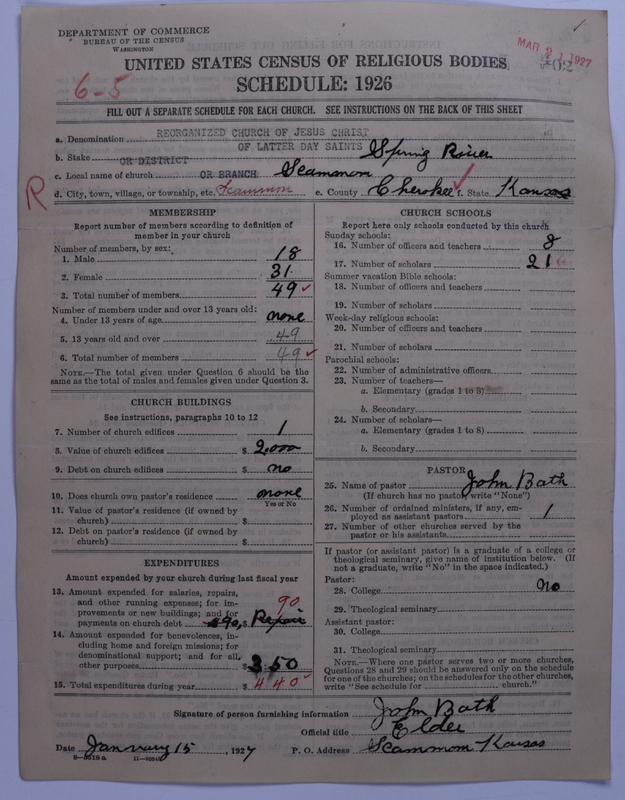 DEPARTMENT OF COMMERCE
BUREAU OF THE CENSUS
WASHINGTON
1
MAR 21 1927
UNITED STATES CENSUS OF RELIGIOUS BODIES
6-5
SCHEDULE: 1926
FILL OUT A SEPARATE SCHEDULE FOR EACH CHURCH. SEE INSTRUCTIONS ON THE BACK OF THIS SHEET
a. Denomination REORGANIZED CHURCH OF JESUS CHRIST
OF LATTER DAY SAINTS
b. Stake OR DISTRICT Spring River
c. Local name of church OR BRANCH Scammon
R d. City, town, village, or township, etc. Scammon e. County Cherokee f. State Kansas
MEMBERSHIP
Report number of members according to definition of
member in your church
Number of members, by sex:
1. Male 18
2. Female 31
3. Total number of members 49
Number of members under and over 13 years old:
4. Under 13 years of age none
5. 13 years old and over 49
6. Total number of members 49
NOTE.—The total given under Question 6 should be the
same as the total of males and females given under Question 3.
CHURCH BUILDINGS
See instructions, paragraphs 10 to 12
7. Number of church edifices 1
8. Value of church edifices $ 2,000
9. Debt on church edifices $ no
10. Does church own pastor's residence none
Yes or No
11. Value of pastor's residence (if owned by
church) $
12. Debt on pastor's residence (if owned by
church) $
EXPENDITURES
Amount expended by your church during last fiscal year
13. Amount expended for salaries, repairs,
and other running expenses; for im-
provements or new buildings; and for
payments on church debt 90, $ Repair
90
14. Amount expended for benevolences, in-
cluding home and foreign missions; for
denominational support; and for all
other purposes $ 350
15. Total expenditures during year $ 440
CHURCH SCHOOLS
Report here only schools conducted by this church
Sunday schools:
16. Number of officers and teachers 8
17. Number of scholars 21
Summer vacation Bible schools:
18. Number of officers and teachers
19. Number of scholars
Week-day religious schools:
20. Number of officers and teachers
21. Number of scholars
Parochial schools:
22. Number of administrative officers
23. Number of teachers—
a. Elementary (grades 1 to 8)
b. Secondary
24. Number of scholars—
a. Elementary (grades 1 to 8)
b. Secondary
PASTOR
25. Name of pastor John Bath
(If church has no pastor, write "None")
26. Number of ordained ministers, if any, em-
ployed as assistant pastors 1
27. Number of other churches served by the
pastor or his assistants
If pastor (or assistant pastor) is a graduate of a college or
theological seminary, give name of institution below. (If
not a graduate, write "No" in the space indicated.)
Pastor:
28. College no
29. Theological seminary
Assistant pastor:
30. College
31. Theological seminary
NOTE.—Where one pastor serves two or more churches,
Questions 28 and 29 should be answered only on the schedule
for one of the churches; on the schedules for the other churches,
write "See schedule for church."
Signature of person furnishing information John Bath
Official title Elder
Date January 15, 1927 P. O. Address Scammon Kansas